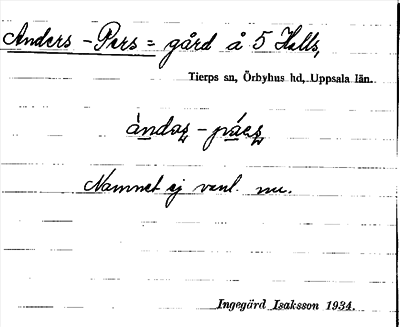 Anders-Pers=gård å 5 Halls,
Tierps sn, Örbyhus hd, Uppsala län.
ándas-páes
Namnet ej vanl. nu.
Ingegärd Isaksson 1934.